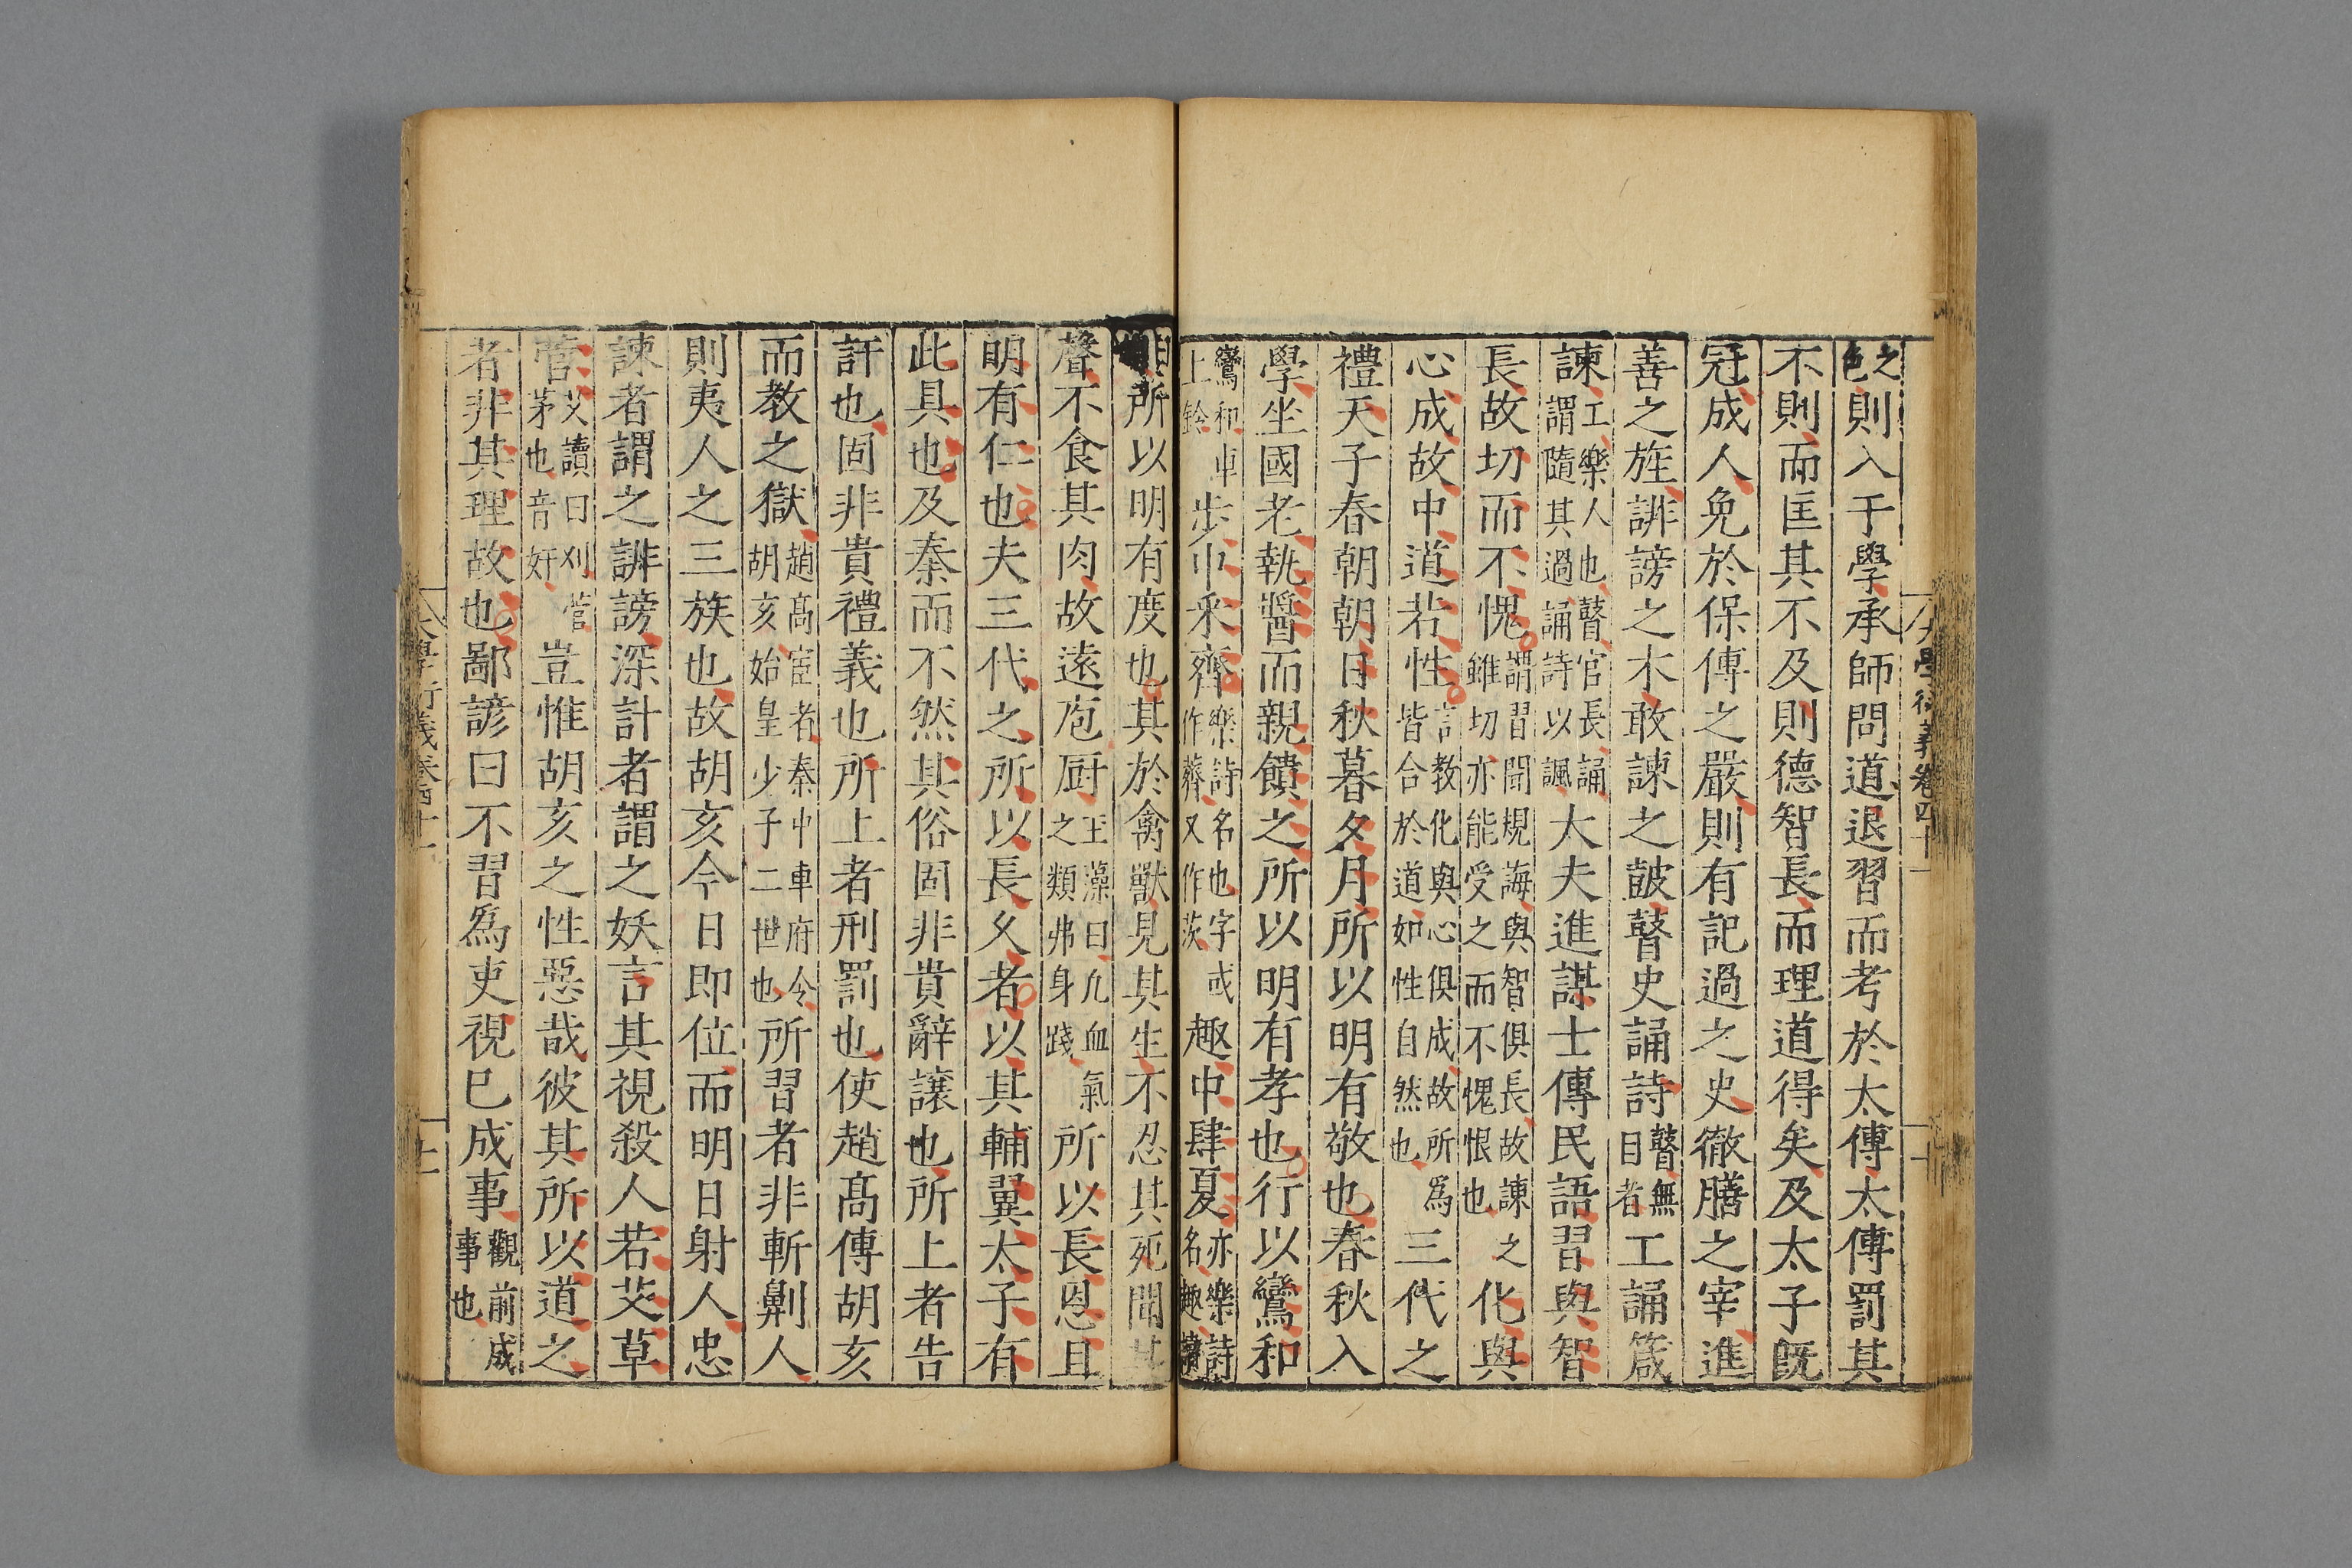 大學衍義卷四十一
十
之色則入于學承師問道退習而考於太傅太傅罰其
不則而匡其不及則德智長而理道得矣及太子既
冠成人免於保傅之嚴則有記過之史徹膳之宰進
善之旌誹謗之木敢諫之鼓瞽史誦詩瞽無目者工誦箴
諫工樂人也瞽官長誦謂隨其過誦詩以諷大夫進謀士傳民語習與智
長故切而不愧謂習聞規誨與智俱長故諫之雖切亦能受之而不愧恨也化與
心成故中道若性言教化與心俱成故所為皆合於道如性自然也三代之
禮天子春朝朝日秋暮夕月所以明有敬也春秋入
學坐國老執醬而親饋之所以明有孝也行以鸞和
鸞和車上鈴步中采齊樂詩名也字或作薺又作茨趣中肆夏亦樂詩名趣讀
所以明有度也其於禽獸見其生不忍其死聞其
聲不食其肉故遠庖厨玉藻曰凡血氣之類弗身踐所以長恩且
明有仁也夫三代之所以長久者以其輔翼太子有
此具也及秦而不然其俗固非貴辭讓也所上者告
訐也固非貴禮義也所上者刑罰也使趙髙傅胡亥
而教之獄趙髙宦者秦中車府令胡亥始皇少子二世也所習者非斬劓人
則夷人之三族也故胡亥今日即位而明日射人忠
諫者謂之誹謗深計者謂之妖言其視殺人若艾草
菅艾讀曰刈菅茅也音奸豈惟胡亥之性惡哉彼其所以道之
者非其理故也鄙諺曰不習爲吏視已成事觀前成事也
大學衍義卷四十一
十一